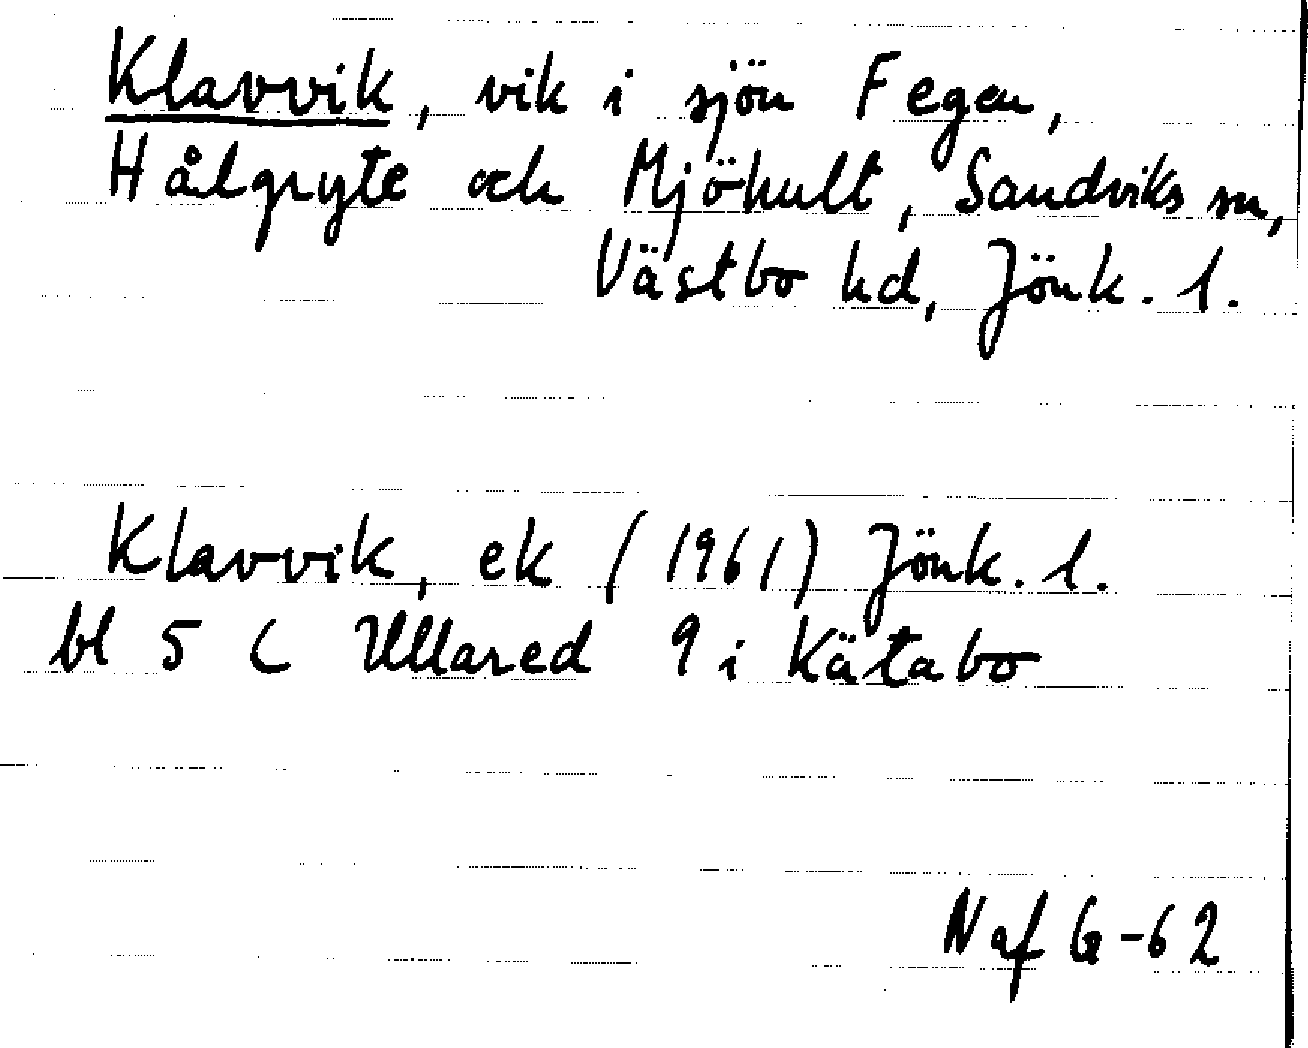 Klavvik, vik i sjön Fegen,
Hålgryte och Mjöhult, Sandviks sn,
Västbo hd, Jönk. l.
Klavvik, ek (1961) Jönk. l.
bl 5 C Ullared 9 i Kätabo
Naf G-62